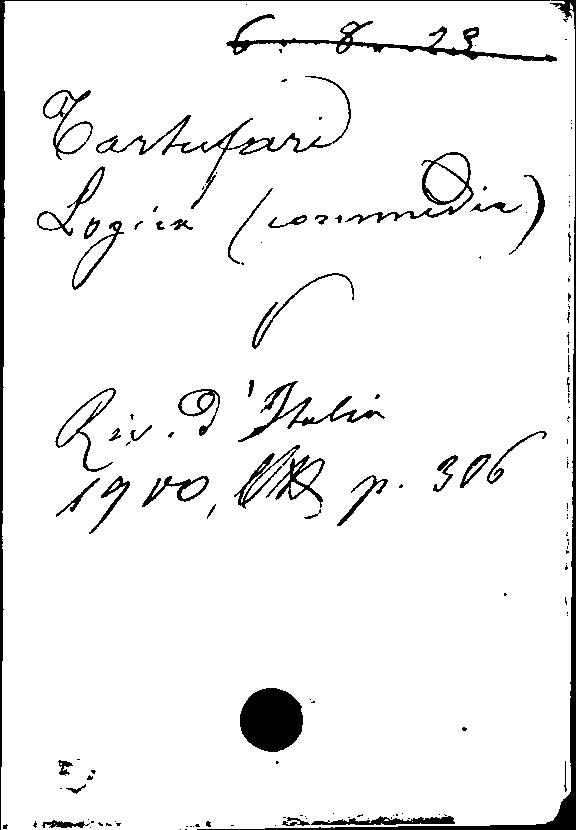 6. 8. 23
Tartufari
Logica (commedia)
Riv. d'Italia
1900, p. 306